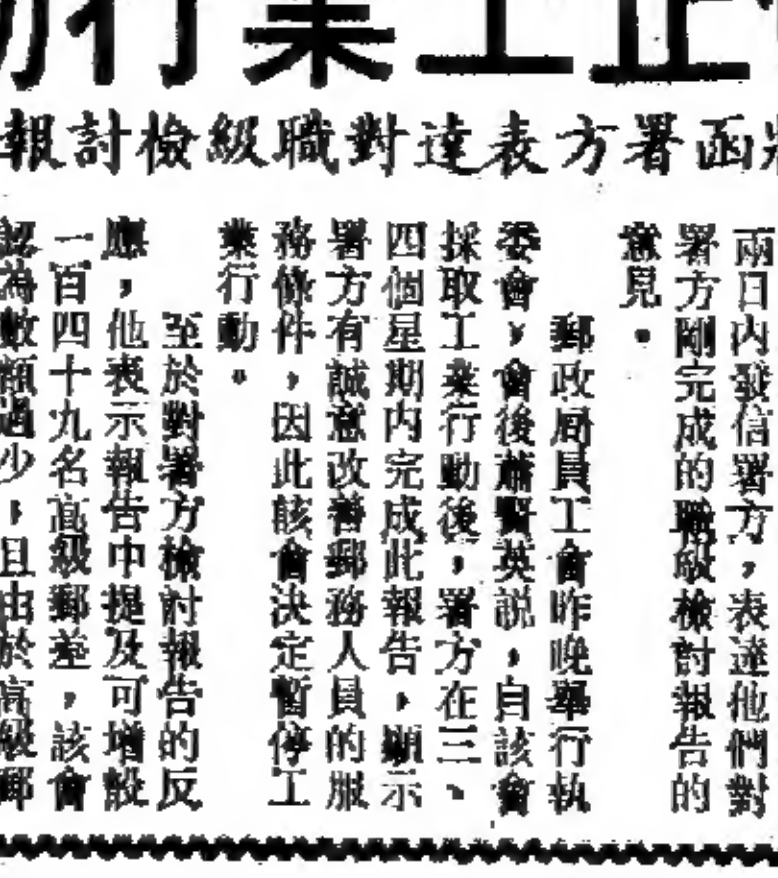 止工業行動
函署方表達對職級檢討報
兩日內發信署方，表達他們對
署方剛完成的職級檢討報告的
意見。
郵政局員工會昨晚舉行執
委會，會後蕭賢英説，自該會
採取工業行動後，署方在三、
四個星期內完成此報告，顯示
署方有誠意改善郵務人員的服
務條件，因此該會決定暫停工
業行動。
至於對署方檢討報告的反
應，他表示報告中提及可增設
一百四十九名高級郵差，該會
認為數額過少，且由於高級郵